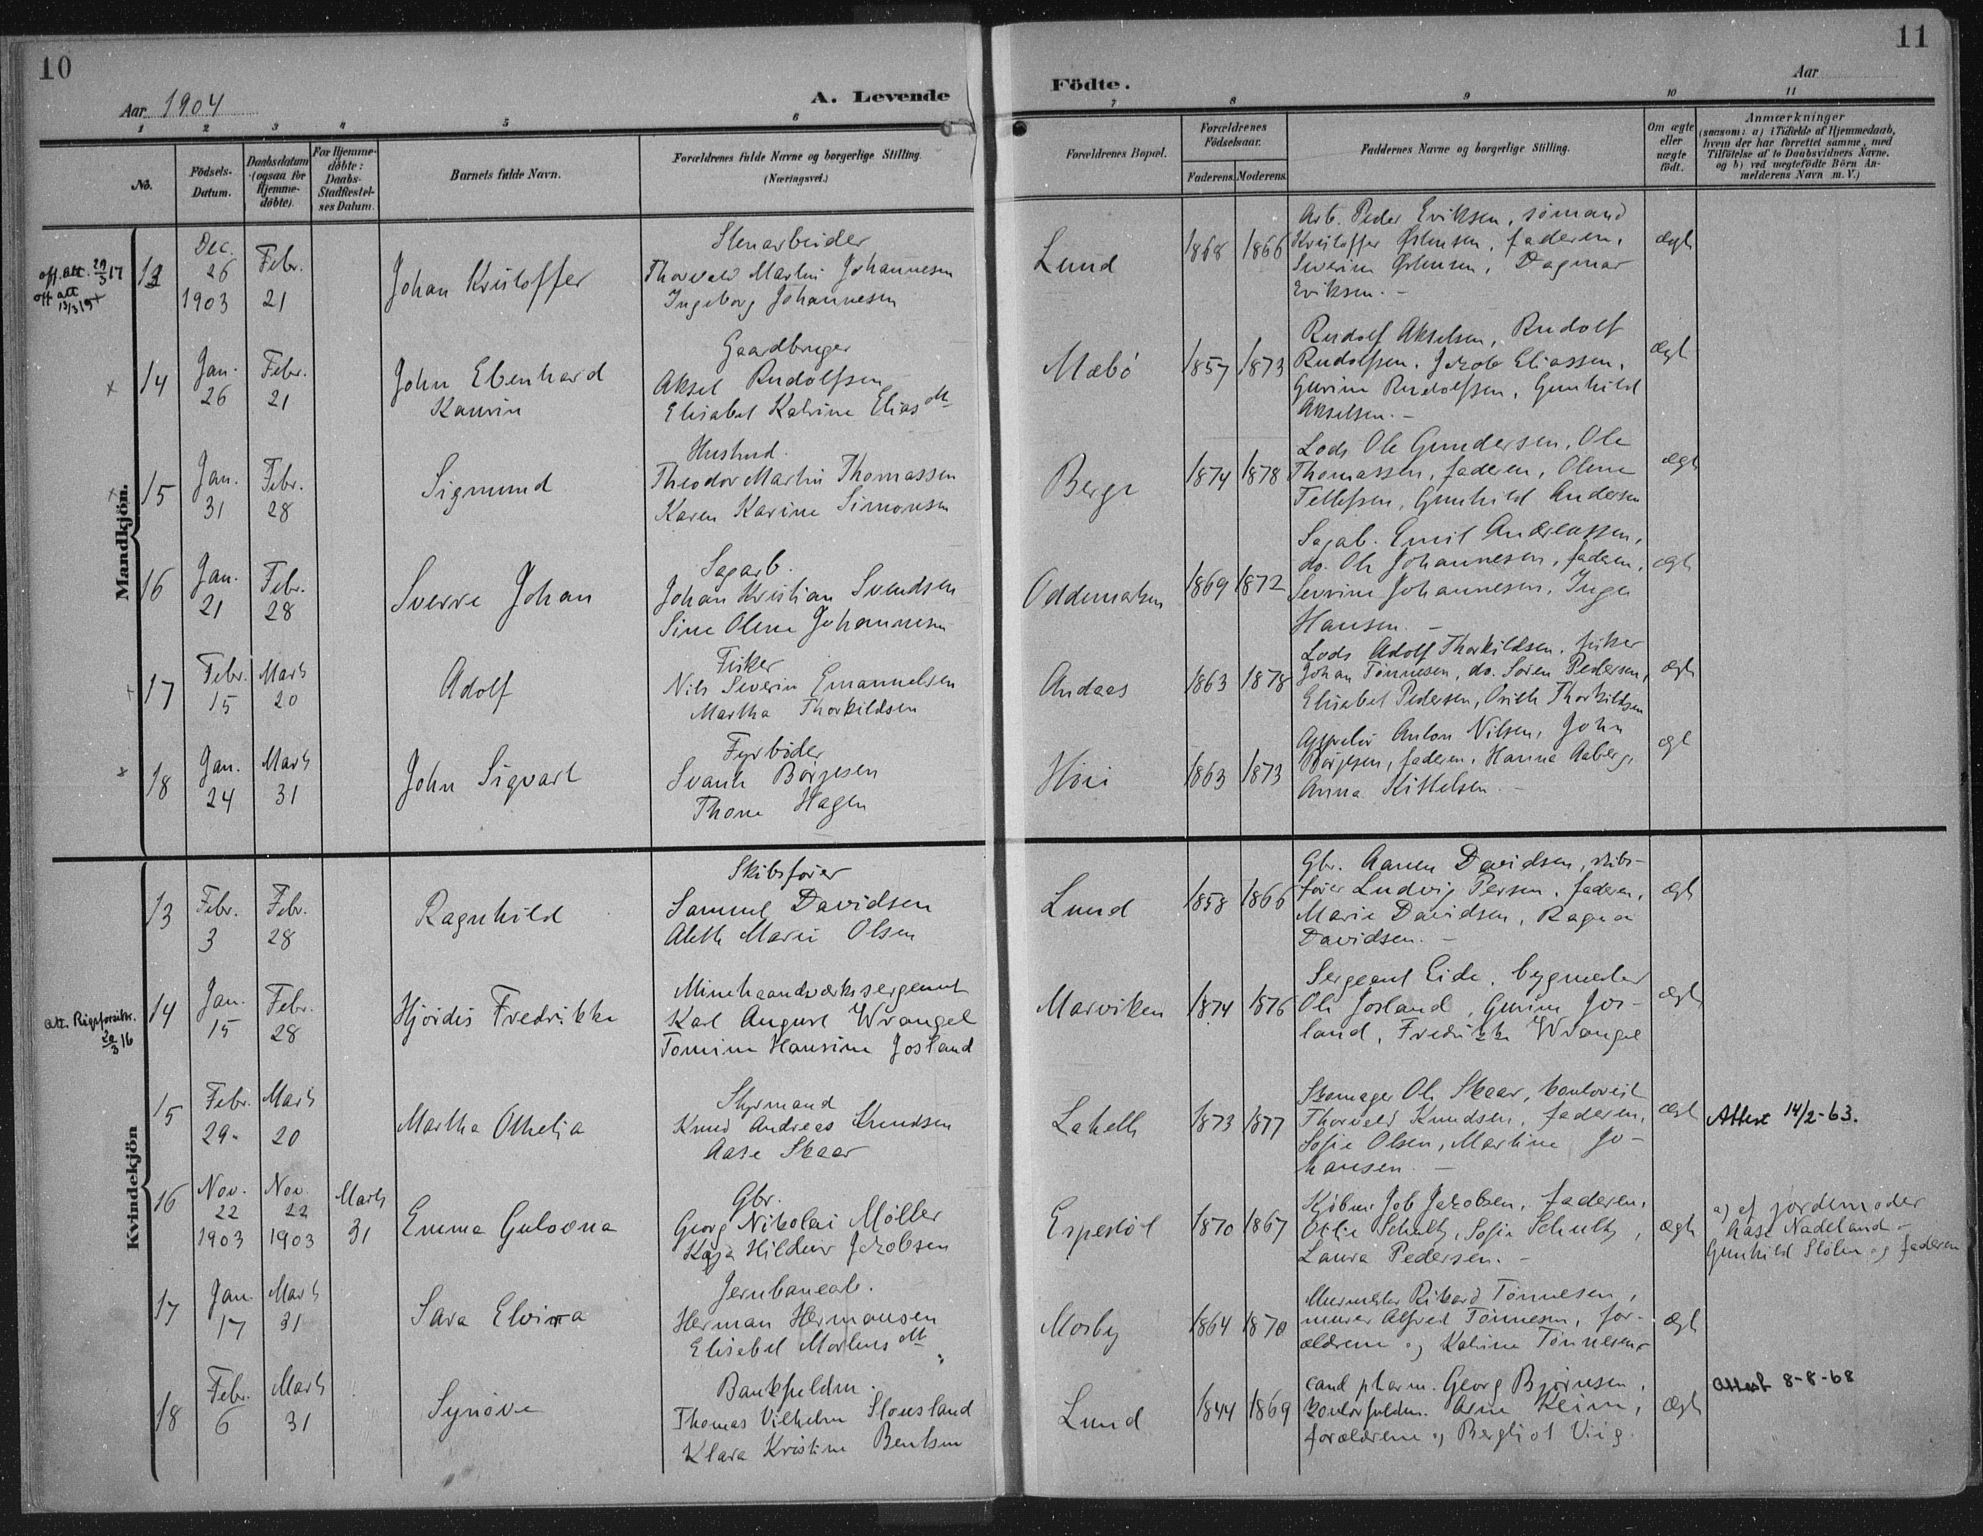 10
11
Aar 1904
A. Levende
Födte.
Aar
1 2 3 4 5 6 7 8 9 10 11
No.
Födsels-Datum.
Daabsdatum (ogsaa for Hjemme-döbte).
For Hjemme-döbte: Daabs-Stadfæstel-ses Datum.
Barnets fulde Navn.
Forældrenes fulde Navne og borgerlige Stilling. (Næringsvei.)
Forældrenes Bopæl.
Forældrenes Födselsaar.
Faderens. Moderens.
Faddernes Navne og borgerlige Stilling.
Om ægte eller uægte födt.
Anmærkninger
(saasom: a) i Tilfælde af Hjemmedaab,
hvem der har forrettet samme, med
Tilföielse af to Daabsvidners Navne.
og b) ved uægtefödte Börn An-
melderens Navn m. V.)
Mandkjön.
off. att. 29/3 17
off att
13
Dec. 26 1903
Febr. 21
Johan Kristoffer
Stenarbeider
Thorvald Martin Johannesen
Ingeborg Johannesen
Lund
1868 1866
Arb. Peder Eriksen, sømand
Kristoffer Østensen, faderen,
Severine Østensen, Dagmar
Eriksen. –
ægte
14
Jan. 26
Febr. 21
John Ebenhard
Kaurin
Gaardbruger
Aksel Rudolfsen
Elisabet Katrine Eliasdtr
Mæbö
1857 1873
Rudolf Akselsen, Rudolf
Rudolfsen, Jakob Eliassen,
Gurine Rudolfsen, Gunhild
Akselsen. –
ægte
15
Jan. 31
Febr. 28
Sigmund
Husmd.
Theodor Martin Thomassen
Karen Karine Simonsen
Berge
1874 1878
Lods Ole Gundersen, Ole
Thomassen, faderen, Olene
Tellefsen, Gunhild Andersen
ægte
16
Jan. 21
Febr. 28
Sverre Johan
Sagarb.
Johan Kristian Svendsen
Sine Olene Johannesen
Oddemarken
1869 1872
Sagab. Emil Andreassen,
do. Ole Johannesen, faderen,
Severine Johannesen, Inga
Hansen. –
ægte
17
Febr. 15
Marts 20
Adolf
Fisker
Nils Severin Emanuelsen
Martha Thorkildsen
Andaas
1863 1878
Lods Adolf Thorkildsen, fisker
Johan Tønnesen, do. Søren Pedersen,
Elisabet Pedersen, Thorkildsen
ægte
18
Jan. 24
Marts 31
John Sigvart
Fyrbøder
Svante Börjesen
Thone Hagen
Höie
1863 1873
Appretör Anton Nilsen, John
Börjesen, faderen, Hanna Aaberg,
Anna Kittelsen. –
ægte
Kvindekjön
13
Febr. 3
Febr. 28
Ragnhild
Skibsfører
Samuel Davidsen
Aleth Marie Olsen
Lund
1858 1866
Gbr. Aanen Davidsen, skibs-
fører Ludvig Persen, faderen,
Marie Davidsen, Ragna
Davidsen. –
ægte
att. Rigsforsikr.
20/3 16
14
Jan. 15
Febr. 28
Hjördis Fredrikke
Minehaandværkssergeant
Karl August Wrangel
Tomine Hansine Josland
Marviken
1874 1876
Sergeant Eide, bygmester
Ole Josland, Gurine Jos-
land, Fredrikke Wrangel
ægte
15
Febr. 29.
Marts 20
Martha Othelia
Styrmand
Knud Andreas Knudsen
Aase Skaar
Lahelle
1873 1877
Skomager Ole Skaar, kontorist
Thorvald Knudsen, faderen,
Sofie Olsen, Martine Jo-
hansen. –
ægte
Attest 14/2-63.
16
Nov. 22 1903
Nov. 22 1903
Marts 31
Emma Gulovna
Gbr.
Georg Nikolai Möller
Kaja Hildeur Jakobsen
Egestöl
1870 1867
Købm. Job Jakobsen, faderen,
Otilie Schultz, Sofie Schultz,
Laura Pedersen. –
ægte
a) af jordemoder
Aase Nadeland –
Gunhild Stölen og faderen
17
Jan. 17
Marts 31
Sara Elvira
Jernbanearb.
Herman Hermansen
Elisabet Mortensdtr
Mosby
1864 1870
Murmester Rikard Tønnesen,
murer Alfred Tønnesen, for-
ældrene og Katrine Tønnesen
ægte
18
Febr. 6
Marts 31
Synöve
Bankfuldm.
Thomas Vilhelm Stousland
Klara Kristine Bentsen
Lund
1844 1869
cand pharm. Georg Bjørnsen,
kontorfuldm. Arne Reim,
forældrene og Bergliot Viig.
ægte
Attest 8-8-68